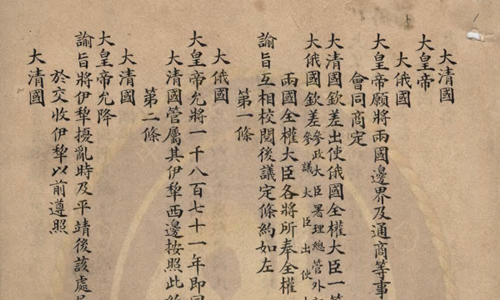 大清國
大皇帝
大俄國
大皇帝願將兩國邊界及通商等事
會同商定
大清國欽差出使俄國全權大臣一等
大俄國欽差參政大臣署理總管外
參議大臣出使
兩國全權大臣各將所奉全權
諭旨互相校閱後議定條約如左
第一條
大俄國
大皇帝允將一千八百七十一年即同
大清國管屬其伊犁西邊按照此約
第二條
大清國
大皇帝允降
諭旨將伊犁擾亂時及平靖後該處居
於交收伊犁以前遵照
大清國